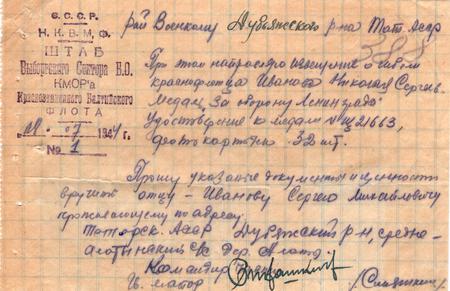 С.С.С.Р.
Н.К.В.М.Ф.
ШТАБ
Выборгского Сектора Б.О.
КМОР'а
Краснознаменного Балтийского
ФЛОТА
07 194
№ 1
рай Военкому Дубъязского р-на Тат. Асср
При этом направляю извещение о гибели
краснофлотца Иванова Николая Сергеев.
Медаль "За оборону Ленинграда"
Удостоверение к медали № Щ 21663,
фотокарточки 32 шт.
Прошу указаные документы и ценности
вручить отцу - Иванову Сергею Михайловичу
проживающему по адресу:
Татарск. Асср Дубъязский р-н, средне-
с/с дер. Алаты
Командир
Гв. майор